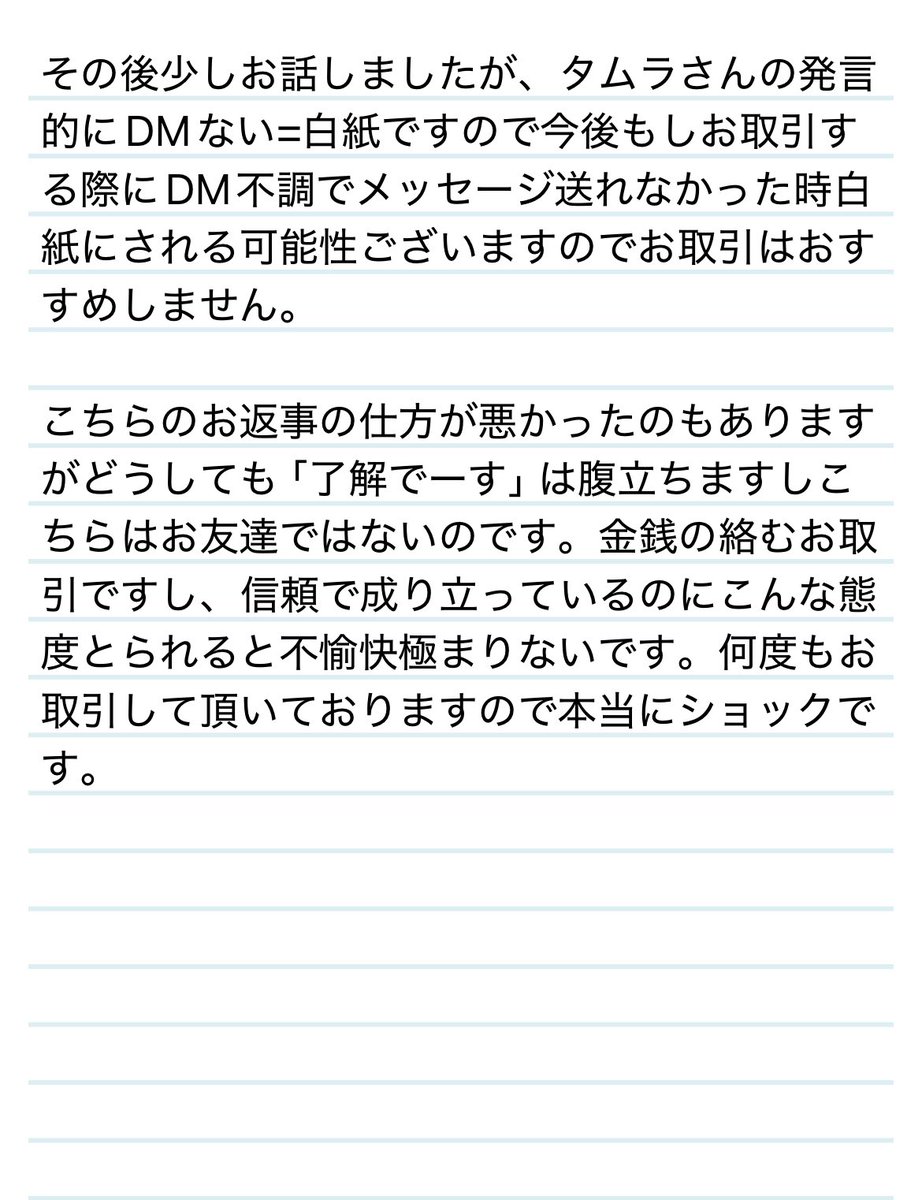 その後少しお話しましたが、タムラさんの発言
的にDMない=白紙ですので今後もしお取引す
る際にDM不調でメッセージ送れなかった時白
紙にされる可能性ございますのでお取引はおす
すめしません。
こちらのお返事の仕方が悪かったのもあります
がどうしても「了解でーす」は腹立ちますしこ
ちらはお友達ではないのです。金銭の絡むお取
引ですし、信頼で成り立っているのにこんな態
度とられると不愉快極まりないです。何度もお
取引して頂いておりますので本当にショックで
す。